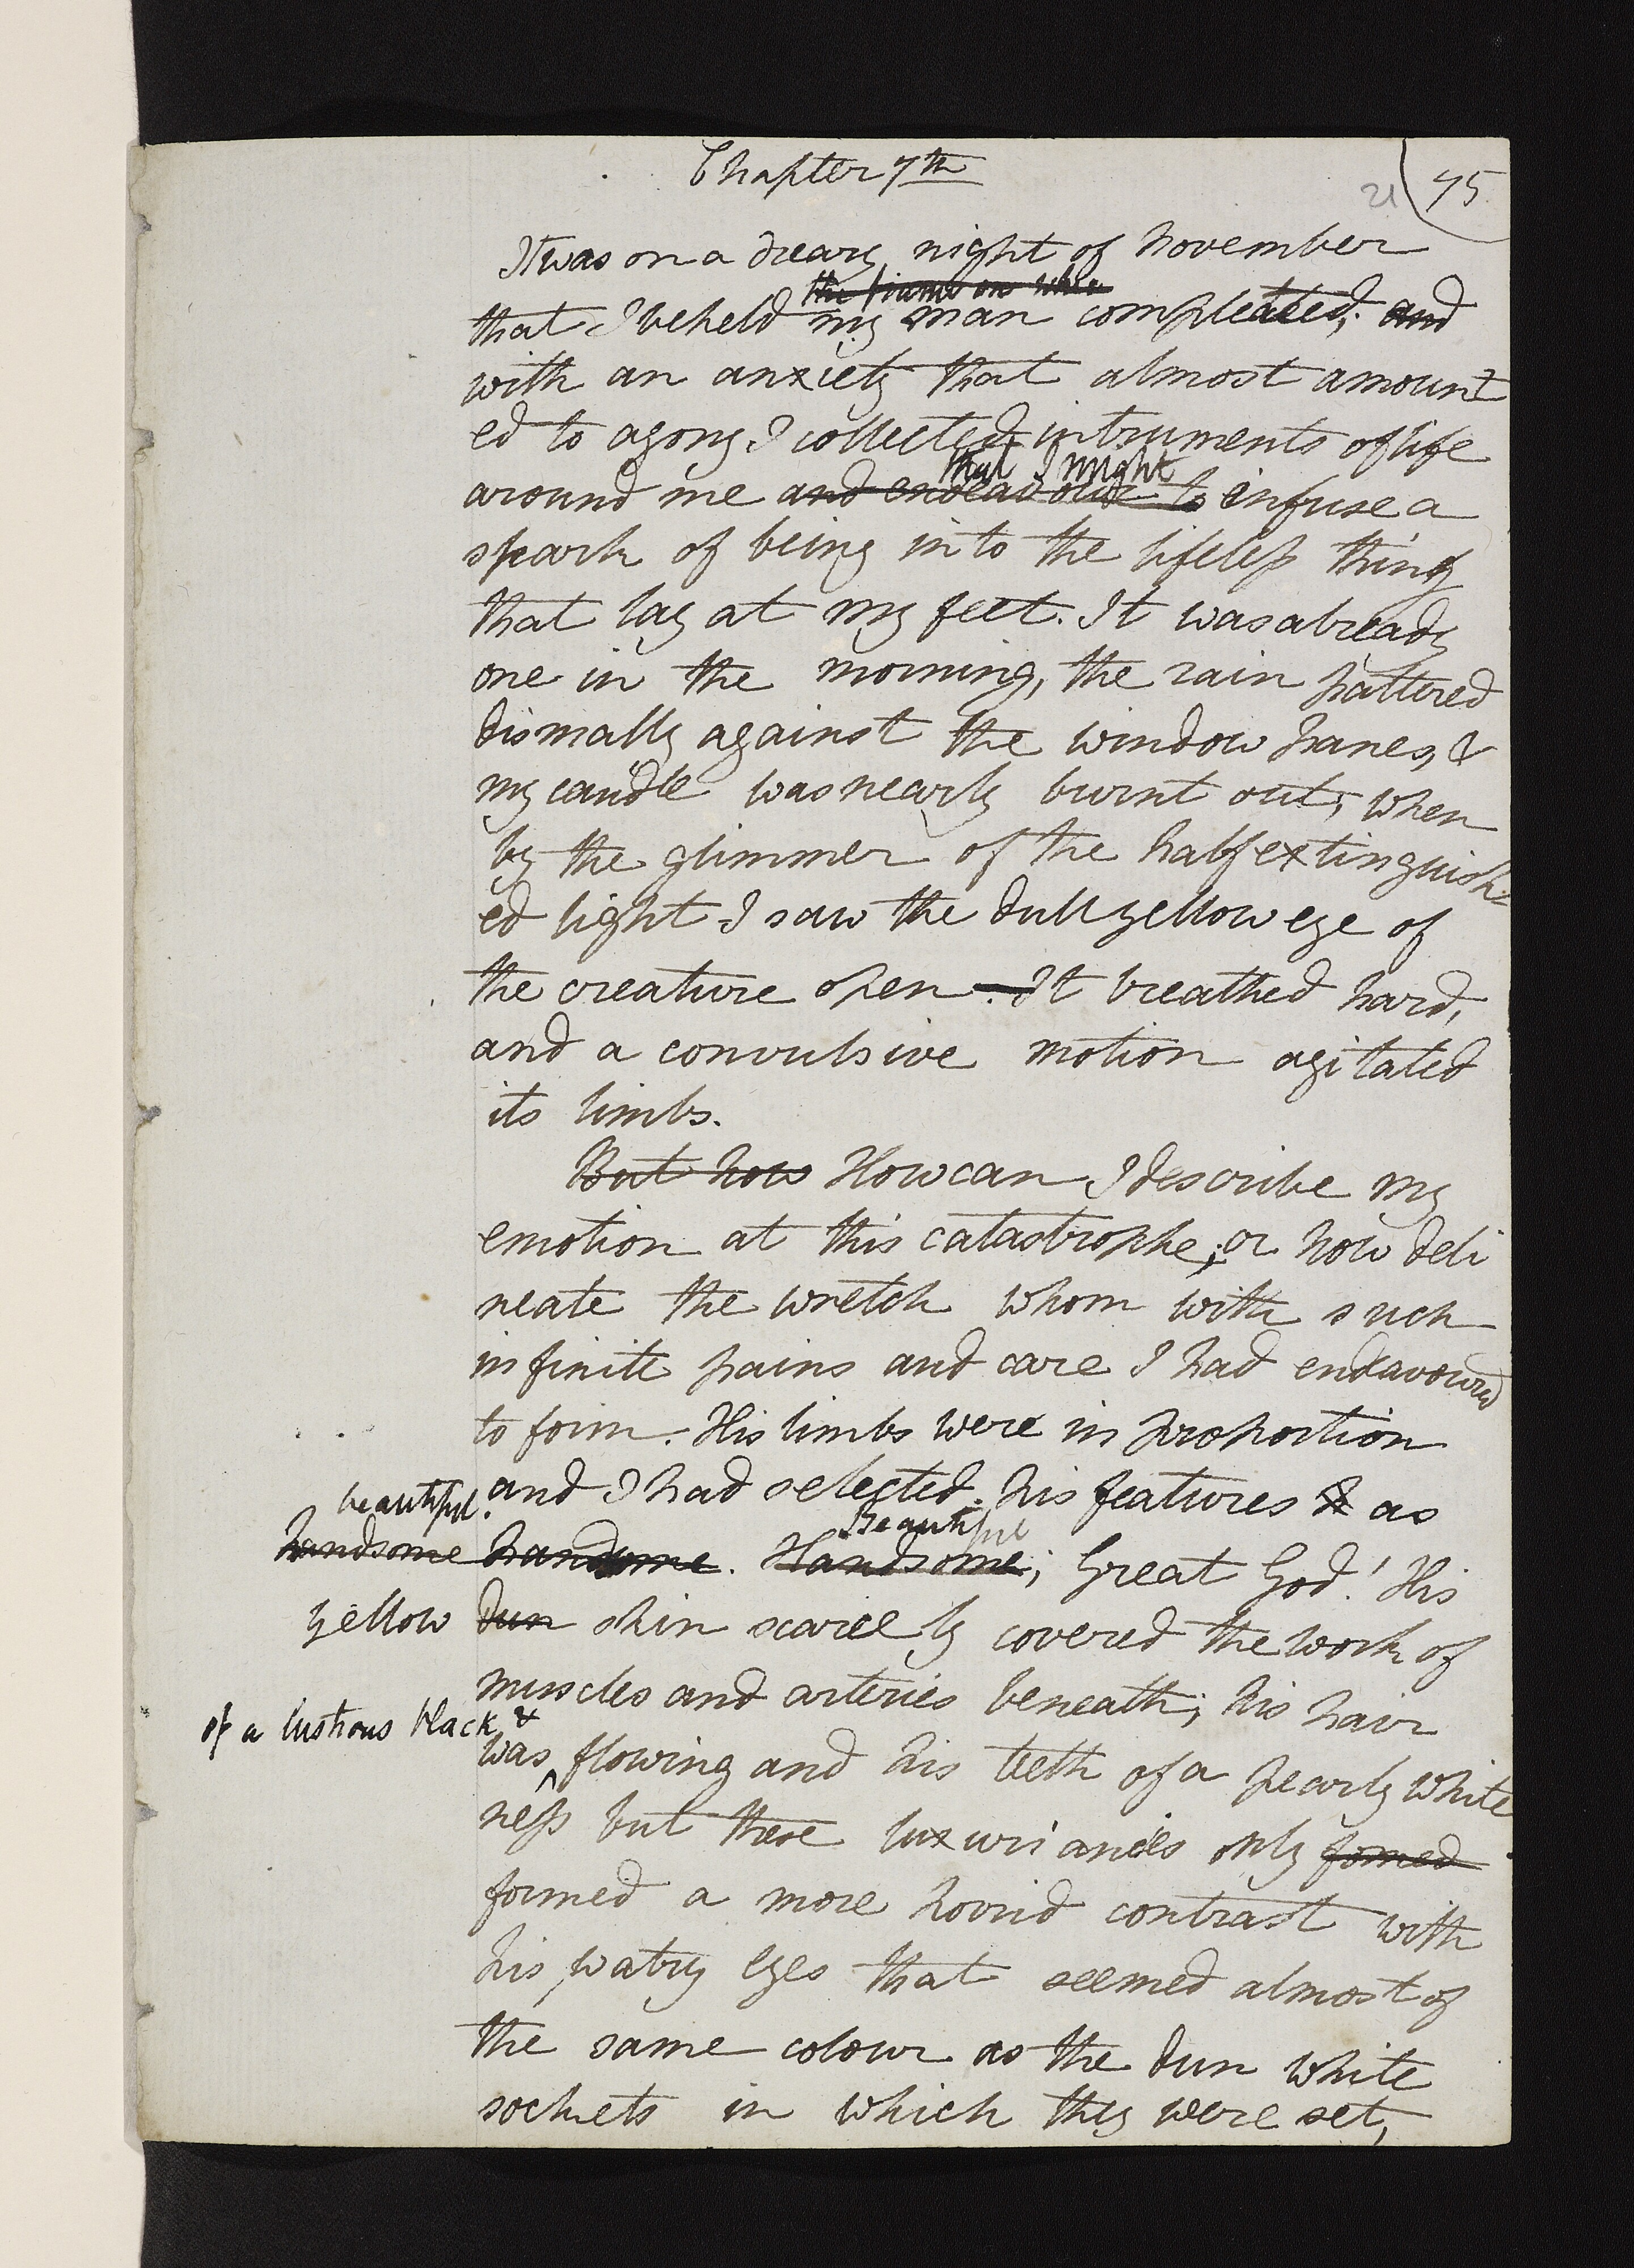 Chapter 7th
21 75
It was on a dreary night of November
the frame on whic
that I beheld my man compleated; and
with an anxiety that almost amount
ed to agony I collected instruments of life
that I might
around me and endeavour to infuse a
spark of being into the lifeless thing
that lay at my feet. It was already
one in the morning, the rain pattered
dismally against the window panes, &
my candle was nearly burnt out, when
by the glimmer of the half extinguish-
ed light I saw the dull yellow eye of
the creature open. — It breathed hard,
and a convulsive motion agitated
its limbs.
But how How can I describe my
emotion at this catastrophe; or how deli
neate the wretch whom with such
infinite pains and care I had endavoured
to form. His limbs were in proportion
and I had selected his features as
beautiful.
handsome handsome. Beautiful
Handsome; Great God! His
yellow dun skin scarcely covered the work of
muscles and arteries beneath; his hair
of a lustrous black, &
was flowing and his teeth of a pearly white
ness but these luxuriances only formed
formed a more horrid contrast with
his watry eyes that seemed almost of
the same colour as the dun white
sockets in which they were set,